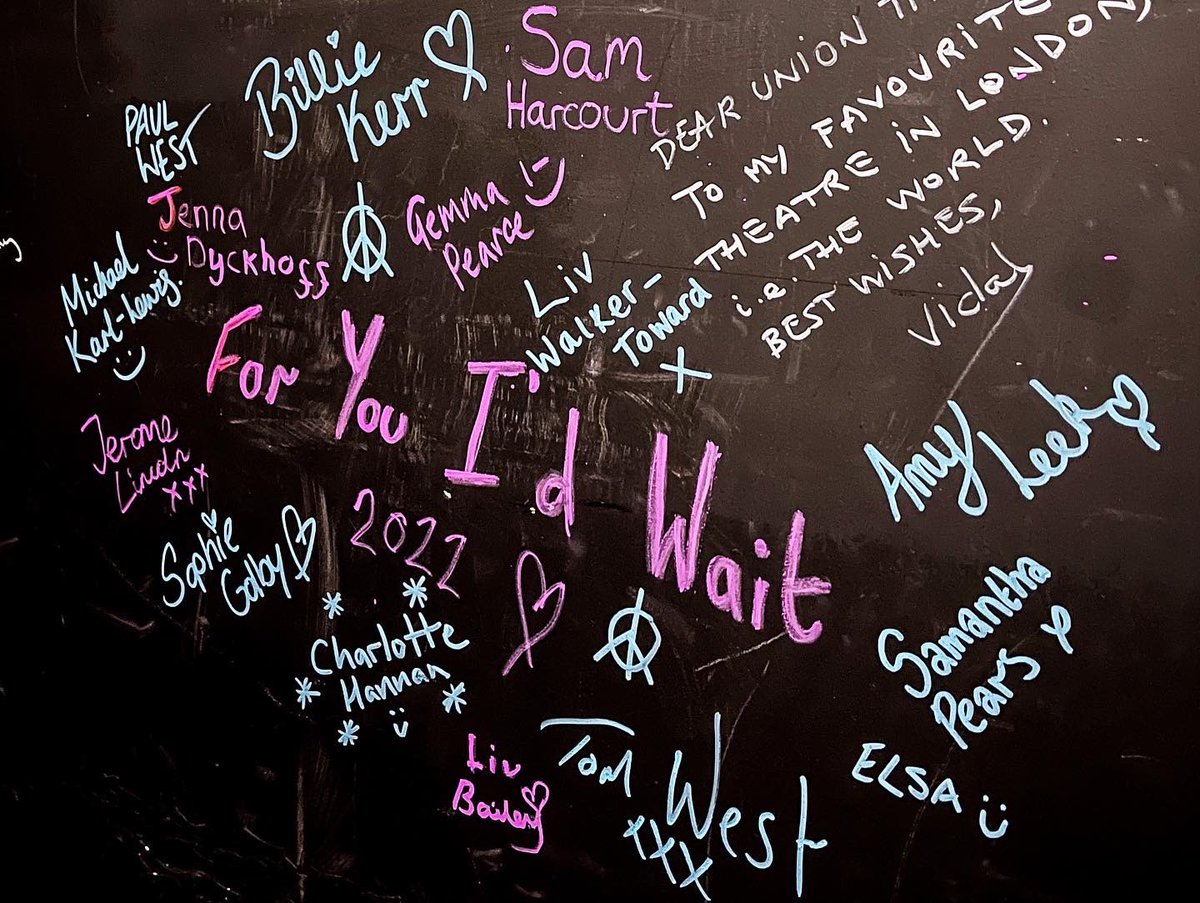 Billie
Kerr
Sam
Harcourt
DEAR UNION
TO MY FAVOURITE
THEATRE IN LONDON,
i.e. THE WORLD.
BEST WISHES,
Vidal
PAUL
WEST
Jenna
Dyckhoff
Gemma
Pearce
Michael
Karl-Lewis.
Liv
Walker-
Toward
X
For You I'd Wait
2022
Jerome
Lincoln
xxx
Amy
Leek
Sophie
Golby
Charlotte
Hannan
Samantha
Pears
Liv
Bailey
Tom
West
xxx
ELSA